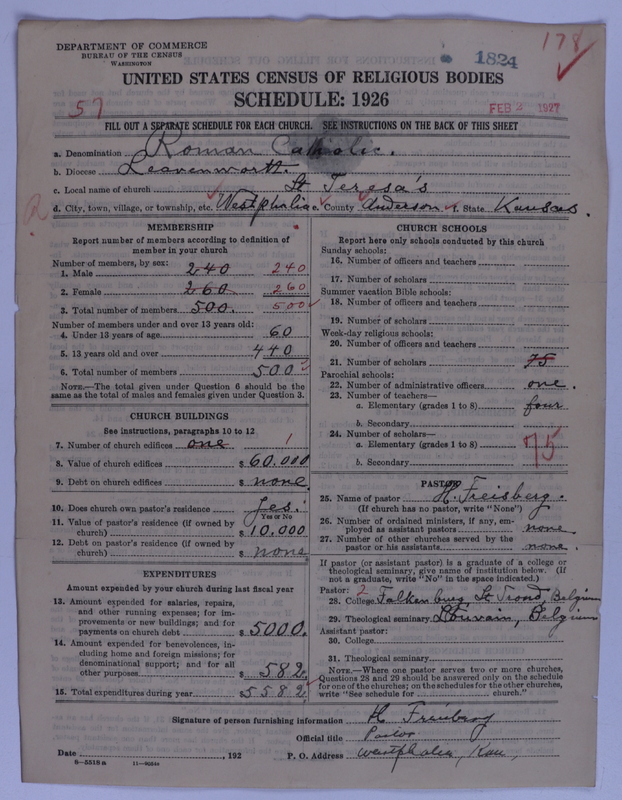 DEPARTMENT OF COMMERCE
BUREAU OF THE CENSUS
WASHINGTON
1824
178
UNITED STATES CENSUS OF RELIGIOUS BODIES
SCHEDULE: 1926
57
FEB 2 1927
FILL OUT A SEPARATE SCHEDULE FOR EACH CHURCH. SEE INSTRUCTIONS ON THE BACK OF THIS SHEET
a. Denomination Roman Catholic.
b. Diocese Leavenworth.
c. Local name of church St Teresa's
d. City, town, village, or township, etc. Westphalia e. County Anderson f. State Kansas.
MEMBERSHIP
Report number of members according to definition of
member in your church
Number of members, by sex:
1. Male 240 240
2. Female 260 260
3. Total number of members 500. 500
Number of members under and over 13 years old:
4. Under 13 years of age 60
5. 13 years old and over 440
6. Total number of members 500
NOTE.—The total given under Question 6 should be the
same as the total of males and females given under Question 3.
CHURCH BUILDINGS
See instructions, paragraphs 10 to 12
7. Number of church edifices one 1
8. Value of church edifices $ 60.000
9. Debt on church edifices $ none
10. Does church own pastor's residence yes.
Yes or No
11. Value of pastor's residence (if owned by
church) $ 10,000
12. Debt on pastor's residence (if owned by
church) $ none
EXPENDITURES
Amount expended by your church during last fiscal year
13. Amount expended for salaries, repairs,
and other running expenses; for im-
provements or new buildings; and for
payments on church debt $ 5000.
14. Amount expended for benevolences, in-
cluding home and foreign missions; for
denominational support; and for all
other purposes $ 582.
15. Total expenditures during year $ 5582
CHURCH SCHOOLS
Report here only schools conducted by this church
Sunday schools:
16. Number of officers and teachers
17. Number of scholars
Summer vacation Bible schools:
18. Number of officers and teachers
19. Number of scholars
Week-day religious schools:
20. Number of officers and teachers
21. Number of scholars 75
Parochial schools:
22. Number of administrative officers one.
23. Number of teachers—
a. Elementary (grades 1 to 8) four
b. Secondary
24. Number of scholars—
a. Elementary (grades 1 to 8) 75
b. Secondary
PASTOR
25. Name of pastor H. Freisberg.
(If church has no pastor, write "None")
26. Number of ordained ministers, if any, em-
ployed as assistant pastors none
27. Number of other churches served by the
pastor or his assistants none.
If pastor (or assistant pastor) is a graduate of a college or
theological seminary, give name of institution below. (If
not a graduate, write "No" in the space indicated.)
Pastor: 2
28. College Falkenburg St Trond, Belgium
29. Theological seminary Louvain, Belgium
Assistant pastor:
30. College
31. Theological seminary
NOTE.—Where one pastor serves two or more churches,
Questions 28 and 29 should be answered only on the schedule
for one of the churches; on the schedules for the other churches,
write "See schedule for church."
Signature of person furnishing information H Freisberg
Official title Pastor
Date , 192 P. O. Address Westphalia, Kan,
8—5518a 11—9684